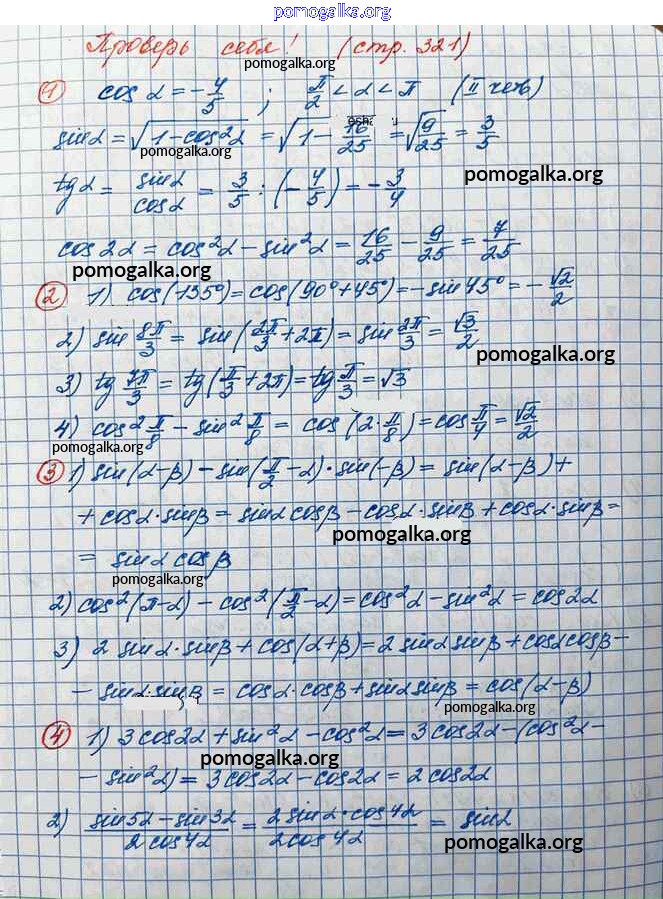 pomogalka.org
Проверь себя! (стр. 321)
pomogalka.org
① cos α = -4/5 ; π/2 < α < π (II четв)
sin α = √(1 - cos²α) = √(1 - 16/25) = √(9/25) = 3/5
pomogalka.org
tg α = sin α / cos α = 3/5 : (-4/5) = -3/4
pomogalka.org
cos 2α = cos²α - sin²α = 16/25 - 9/25 = 7/25
pomogalka.org
② 1) cos(135°) = cos(90° + 45°) = -sin 45° = -√2/2
2) sin 8π/3 = sin(2π/3 + 2π) = sin 2π/3 = √3/2
pomogalka.org
3) tg 7π/3 = tg(π/3 + 2π) = tg π/3 = √3
4) cos² π/8 - sin² π/8 = cos(2·π/8) = cos π/4 = √2/2
pomogalka.org
③ 1) sin(α-β) - sin(π/2 - α)·sin(-β) = sin(α-β) +
+ cos α·sin β = sin α cos β - cos α·sin β + cos α·sin β =
pomogalka.org
= sin α cos β
pomogalka.org
2) cos²(π-α) - cos²(π/2 - α) = cos²α - sin²α = cos 2α
3) 2 sin α·sin β + cos(α+β) = 2 sin α sin β + cos α cos β -
- sin α·sin β = cos α·cos β + sin α sin β = cos(α-β)
pomogalka.org
④ 1) 3 cos 2α + sin²α - cos²α = 3 cos 2α - (cos²α -
pomogalka.org
- sin²α) = 3 cos 2α - cos 2α = 2 cos 2α
2) (sin 5α - sin 3α) / (2 cos 4α) = (2 sin α·cos 4α) / (2 cos 4α) = sin α
pomogalka.org
pomogalka.org